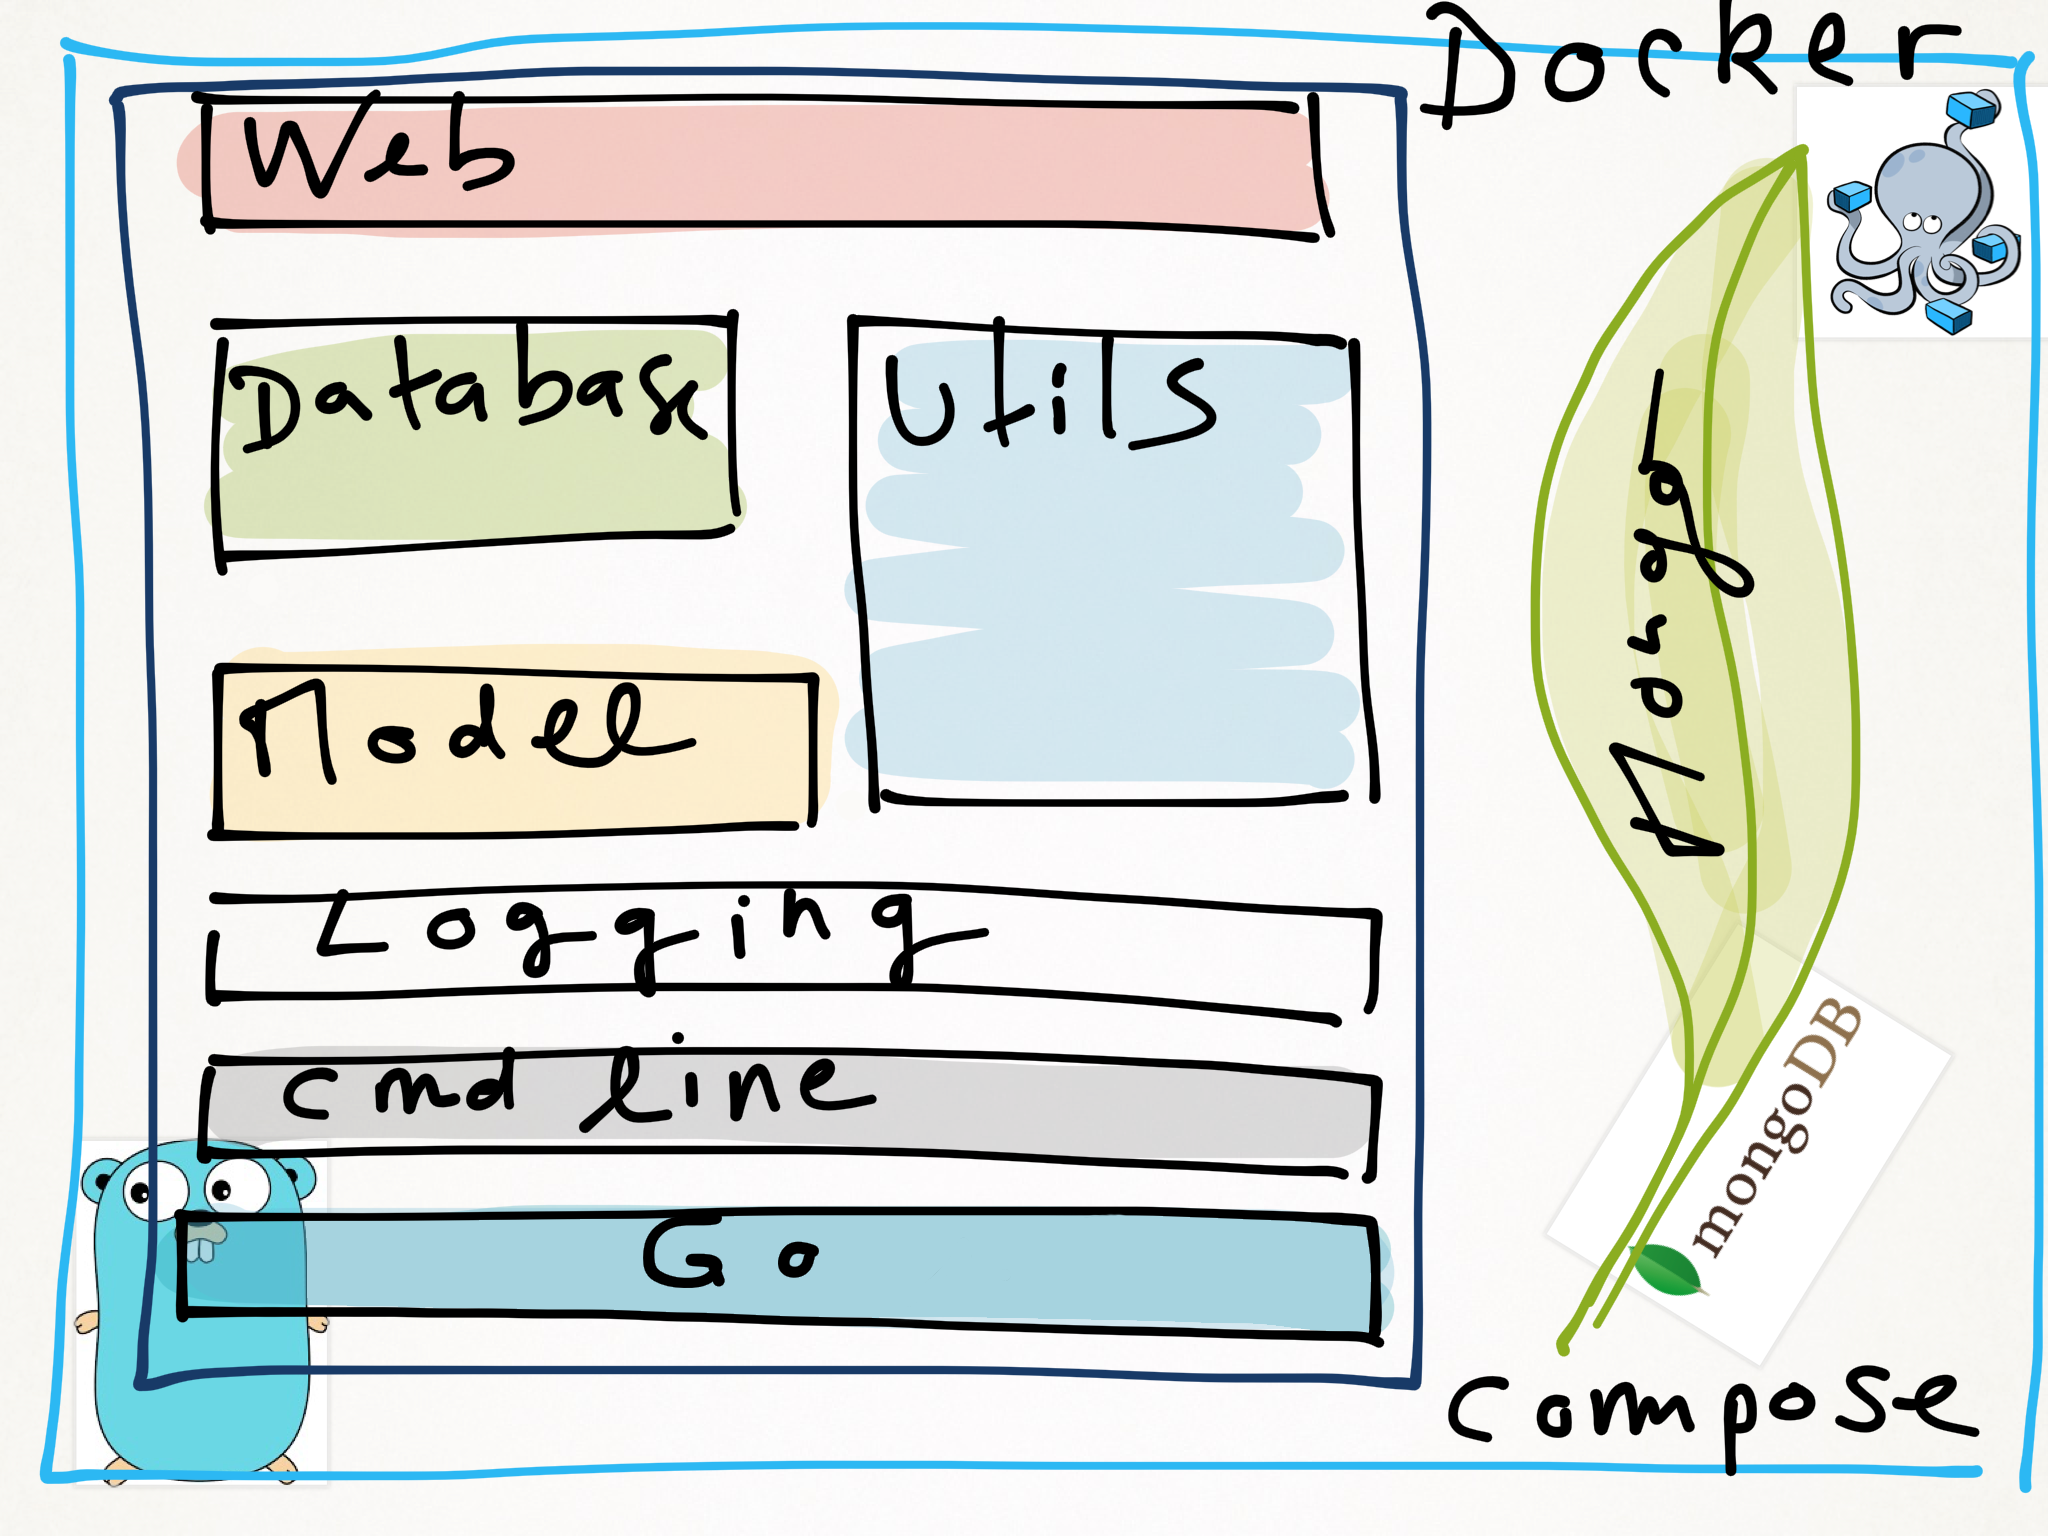 Docker
Web
Database
Utils
Mongo
Model
Logging
cmd line
mongoDB
Go
Compose